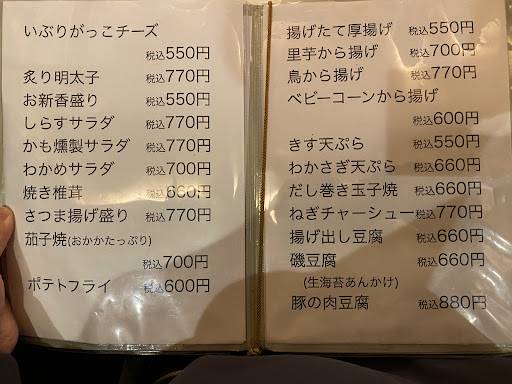 いぶりがっこチーズ
税込550円
炙り明太子 税込770円
お新香盛り 税込550円
しらすサラダ 税込770円
かも燻製サラダ 税込770円
わかめサラダ 税込700円
焼き椎茸 税込660円
さつま揚げ盛り 税込770円
茄子焼(おかかたっぷり)
税込700円
ポテトフライ 税込600円
揚げたて厚揚げ 税込550円
里芋から揚げ 税込700円
鳥から揚げ 税込770円
ベビーコーンから揚げ
税込600円
きす天ぷら 税込550円
わかさぎ天ぷら 税込660円
だし巻き玉子焼 税込660円
ねぎチャーシュー税込770円
揚げ出し豆腐 税込660円
磯豆腐 税込660円
(生海苔あんかけ)
豚の肉豆腐 税込880円